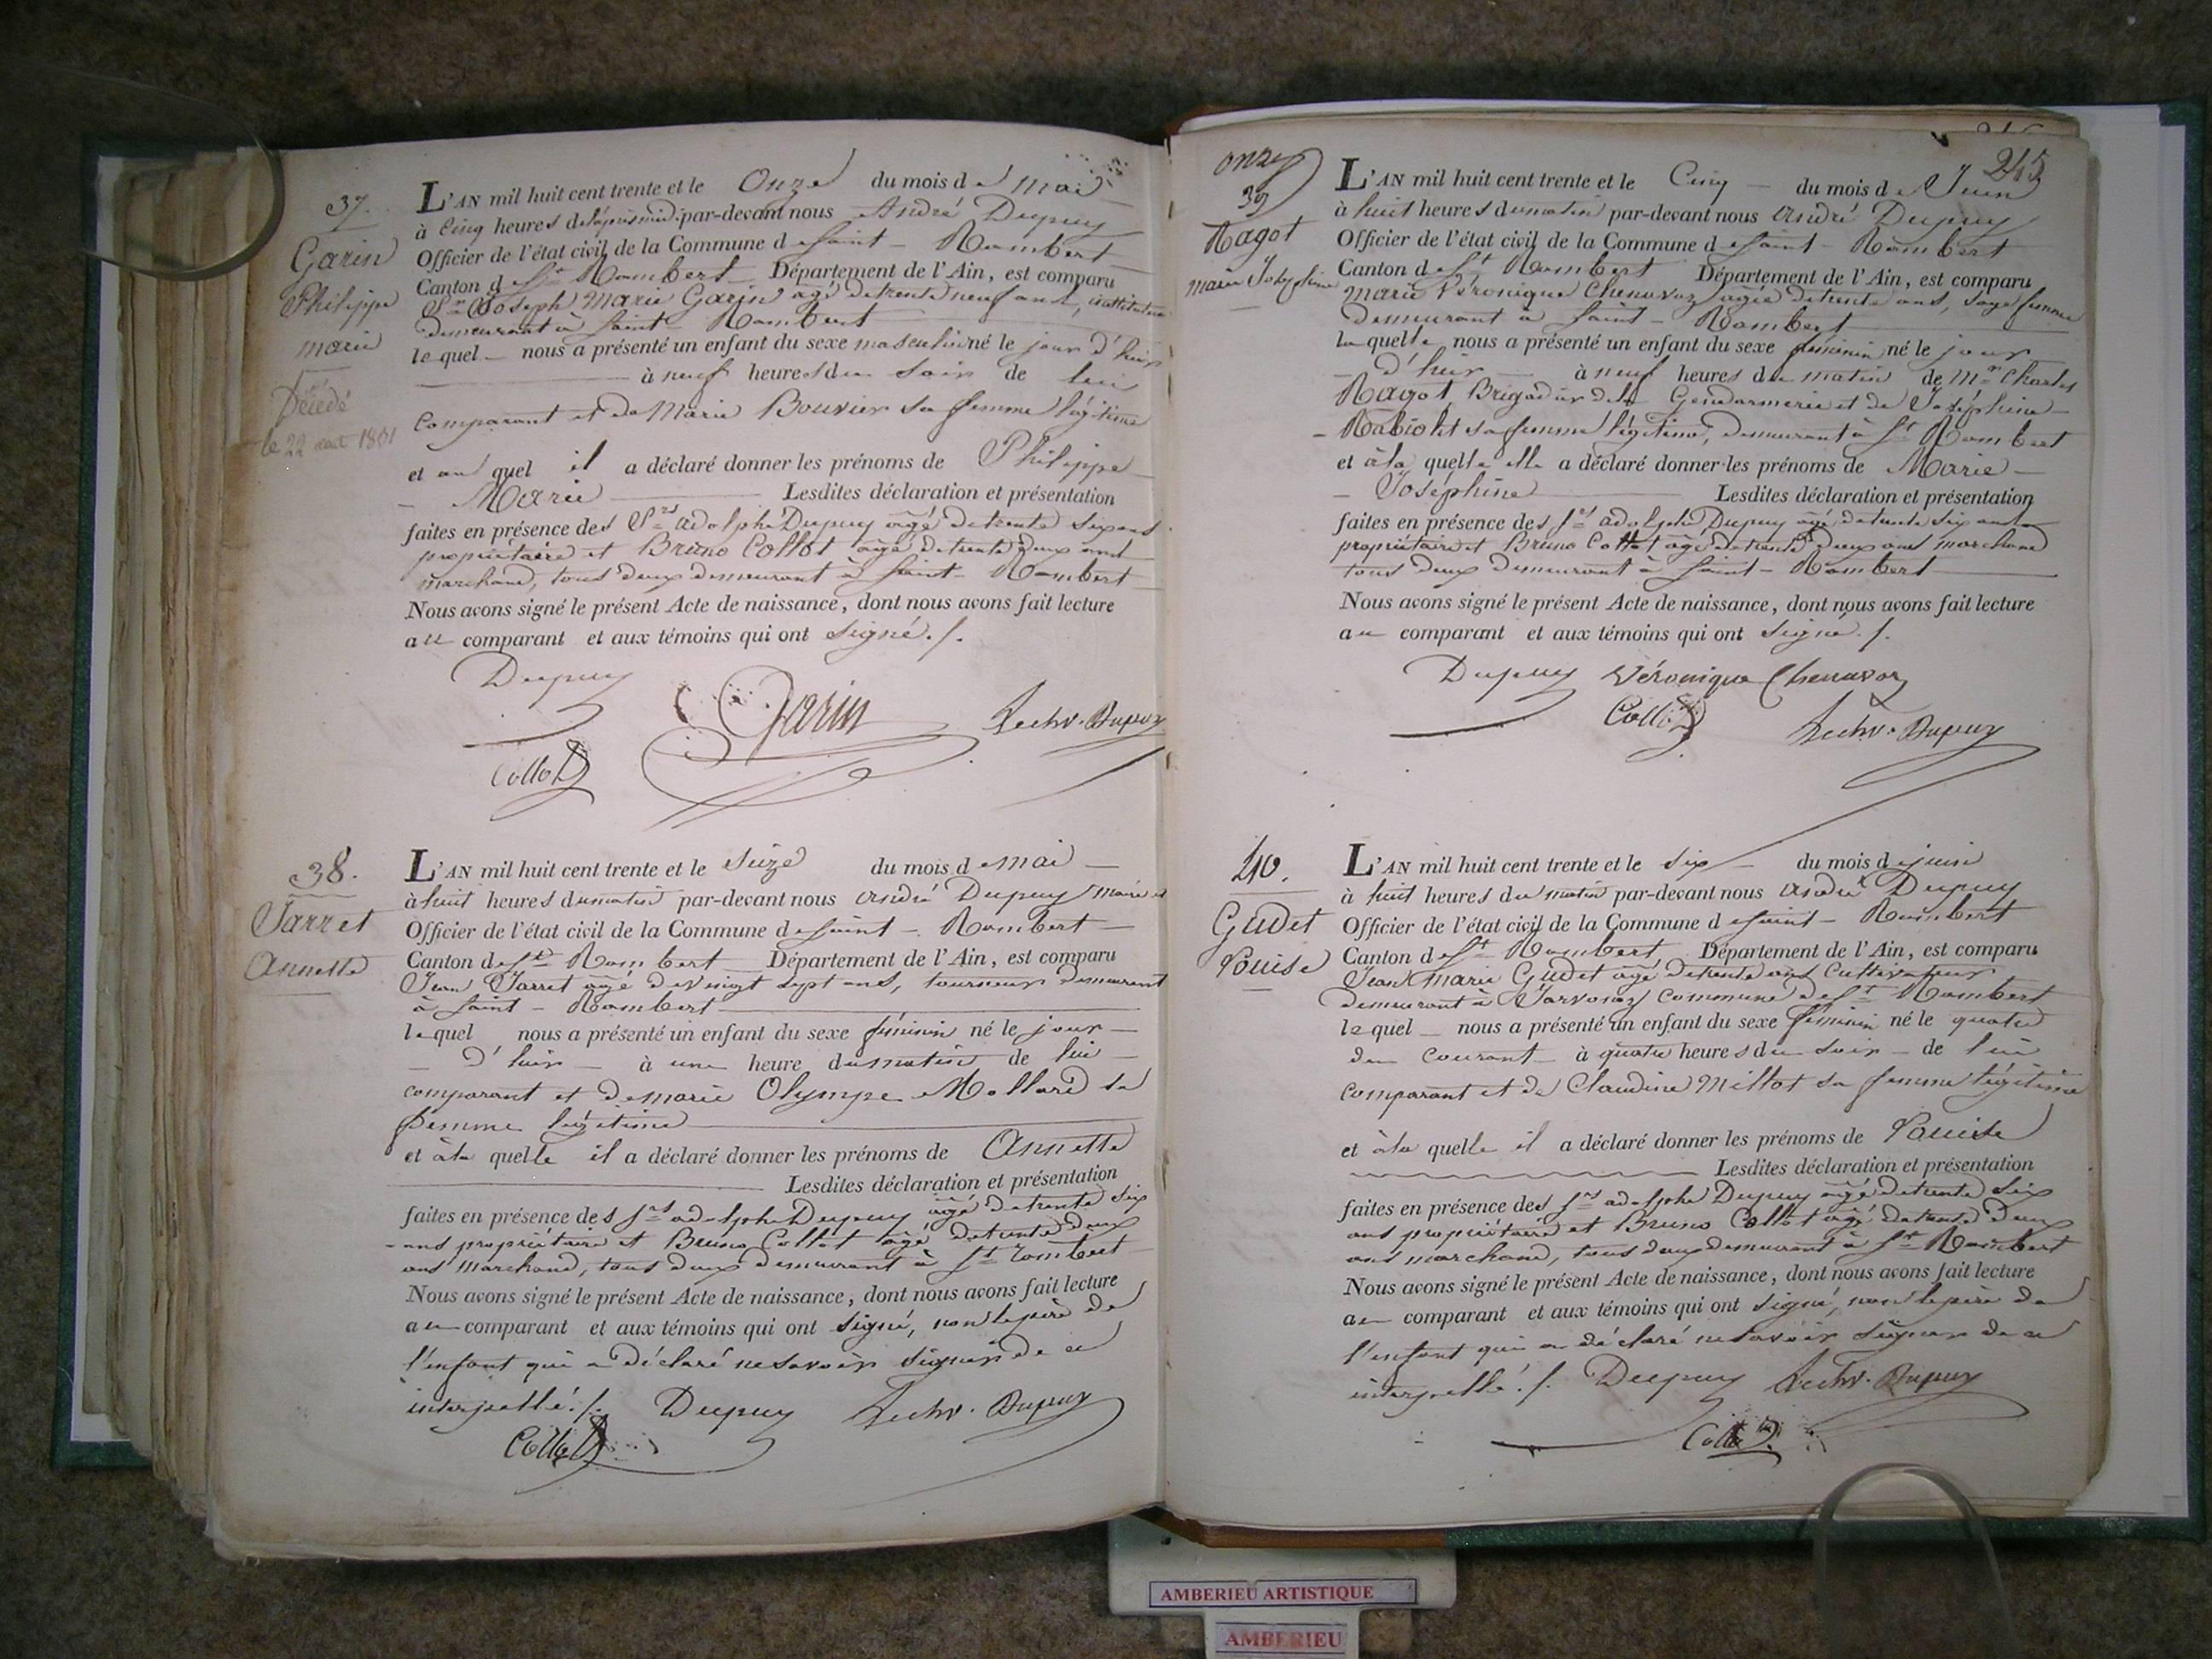 37.
Garin
Philippe
marie
Décédé
le 22 aout 1801
L'AN mil huit cent trente et le Onze du mois de mai
à Cinq heures de l'après midi par-devant nous André Dupuy
Officier de l'état civil de la Commune de Saint-Rambert
Canton de St Rambert Département de l'Ain, est comparu
Sr Joseph Marie Garin agé de trente neuf ans, instituteur
demeurant à Saint-Rambert
lequel nous a présenté un enfant du sexe masculin né le jour d'hier
à neuf heures du soir de lui
comparant et de Marie Bouvier sa femme légitime
et au quel il a déclaré donner les prénoms de Philippe
Marie Lesdites déclaration et présentation
faites en présence des Srs adolphe Dupuy agé de trente six ans
propriétaire et Bruno Collot agé de trente deux ans
marchand, tous deux demeurant à Saint-Rambert
Nous avons signé le présent Acte de naissance, dont nous avons fait lecture
au comparant et aux témoins qui ont signé ./.
Dupuy Garin Dupuy
Collot
38.
Jarret
Annette
L'AN mil huit cent trente et le Seize du mois de mai
à huit heures du matin par-devant nous André Dupuy maire et
Officier de l'état civil de la Commune de Saint-Rambert
Canton de St Rambert Département de l'Ain, est comparu
Jean Jarret agé de vingt sept ans, tourneur demeurant
à Saint-Rambert
lequel nous a présenté un enfant du sexe féminin né le jour
d'hier à une heure du matin de lui
comparant et de marie Olympe Mollard sa
femme légitime
et à la quelle il a déclaré donner les prénoms de Annette
Lesdites déclaration et présentation
faites en présence des Srs adolphe Dupuy agé de trente six
ans propriétaire et Bruno Collot agé de trente deux
ans marchand, tous deux demeurant à St rambert
Nous avons signé le présent Acte de naissance, dont nous avons fait lecture
au comparant et aux témoins qui ont signé, non le père de
l'enfant qui a déclaré ne savoir signer de ce
interpellé ./. Dupuy Dupuy
Collot
245
onze
39
Ragot
marie Joséphine
L'AN mil huit cent trente et le Cinq du mois de Juin
à huit heures du matin par-devant nous André Dupuy
Officier de l'état civil de la Commune de Saint-Rambert
Canton de St Rambert Département de l'Ain, est comparu
Marie Véronique Chenavoz agée de trente ans, sage femme
demeurant à Saint-Rambert
la quelle nous a présenté un enfant du sexe féminin né le jour
d'hier à neuf heures du matin de Mr Charles
Ragot, Brigadier de la Gendarmerie et de Joséphine
Rabiolet sa femme légitime, demeurant à St Rambert
et à la quelle elle a déclaré donner les prénoms de Marie
Joséphine Lesdites déclaration et présentation
faites en présence des Srs adolphe Dupuy agé de trente six ans
propriétaire et Bruno Collot agé de trente deux ans marchand
tous deux demeurant à Saint-Rambert
Nous avons signé le présent Acte de naissance, dont nous avons fait lecture
au comparant et aux témoins qui ont signé ./.
Dupuy Véronique Chenavoz
Collot Dupuy
40.
Gudet
Louise
L'AN mil huit cent trente et le six du mois de juin
à huit heures du matin par-devant nous André Dupuy
Officier de l'état civil de la Commune de Saint-Rambert
Canton de St Rambert Département de l'Ain, est comparu
Jean marie Gudet agé de trente ans Cultivateur
demeurant à Javornoz Commune de St Rambert
lequel nous a présenté un enfant du sexe féminin né le quatre
du courant à quatre heures du soir de lui
comparant et de Claudine Millot sa femme légitime
et à la quelle il a déclaré donner les prénoms de Louise
Lesdites déclaration et présentation
faites en présence des Srs adolphe Dupuy agé de trente six
ans propriétaire et Bruno Collot agé de trente deux
ans marchand, tous deux demeurant à St Rambert
Nous avons signé le présent Acte de naissance, dont nous avons fait lecture
au comparant et aux témoins qui ont signé, non le père de
l'enfant qui a déclaré ne savoir signer de ce
interpellé ./. Dupuy Dupuy
Collot
AMBERIEU ARTISTIQUE
AMBERIEU